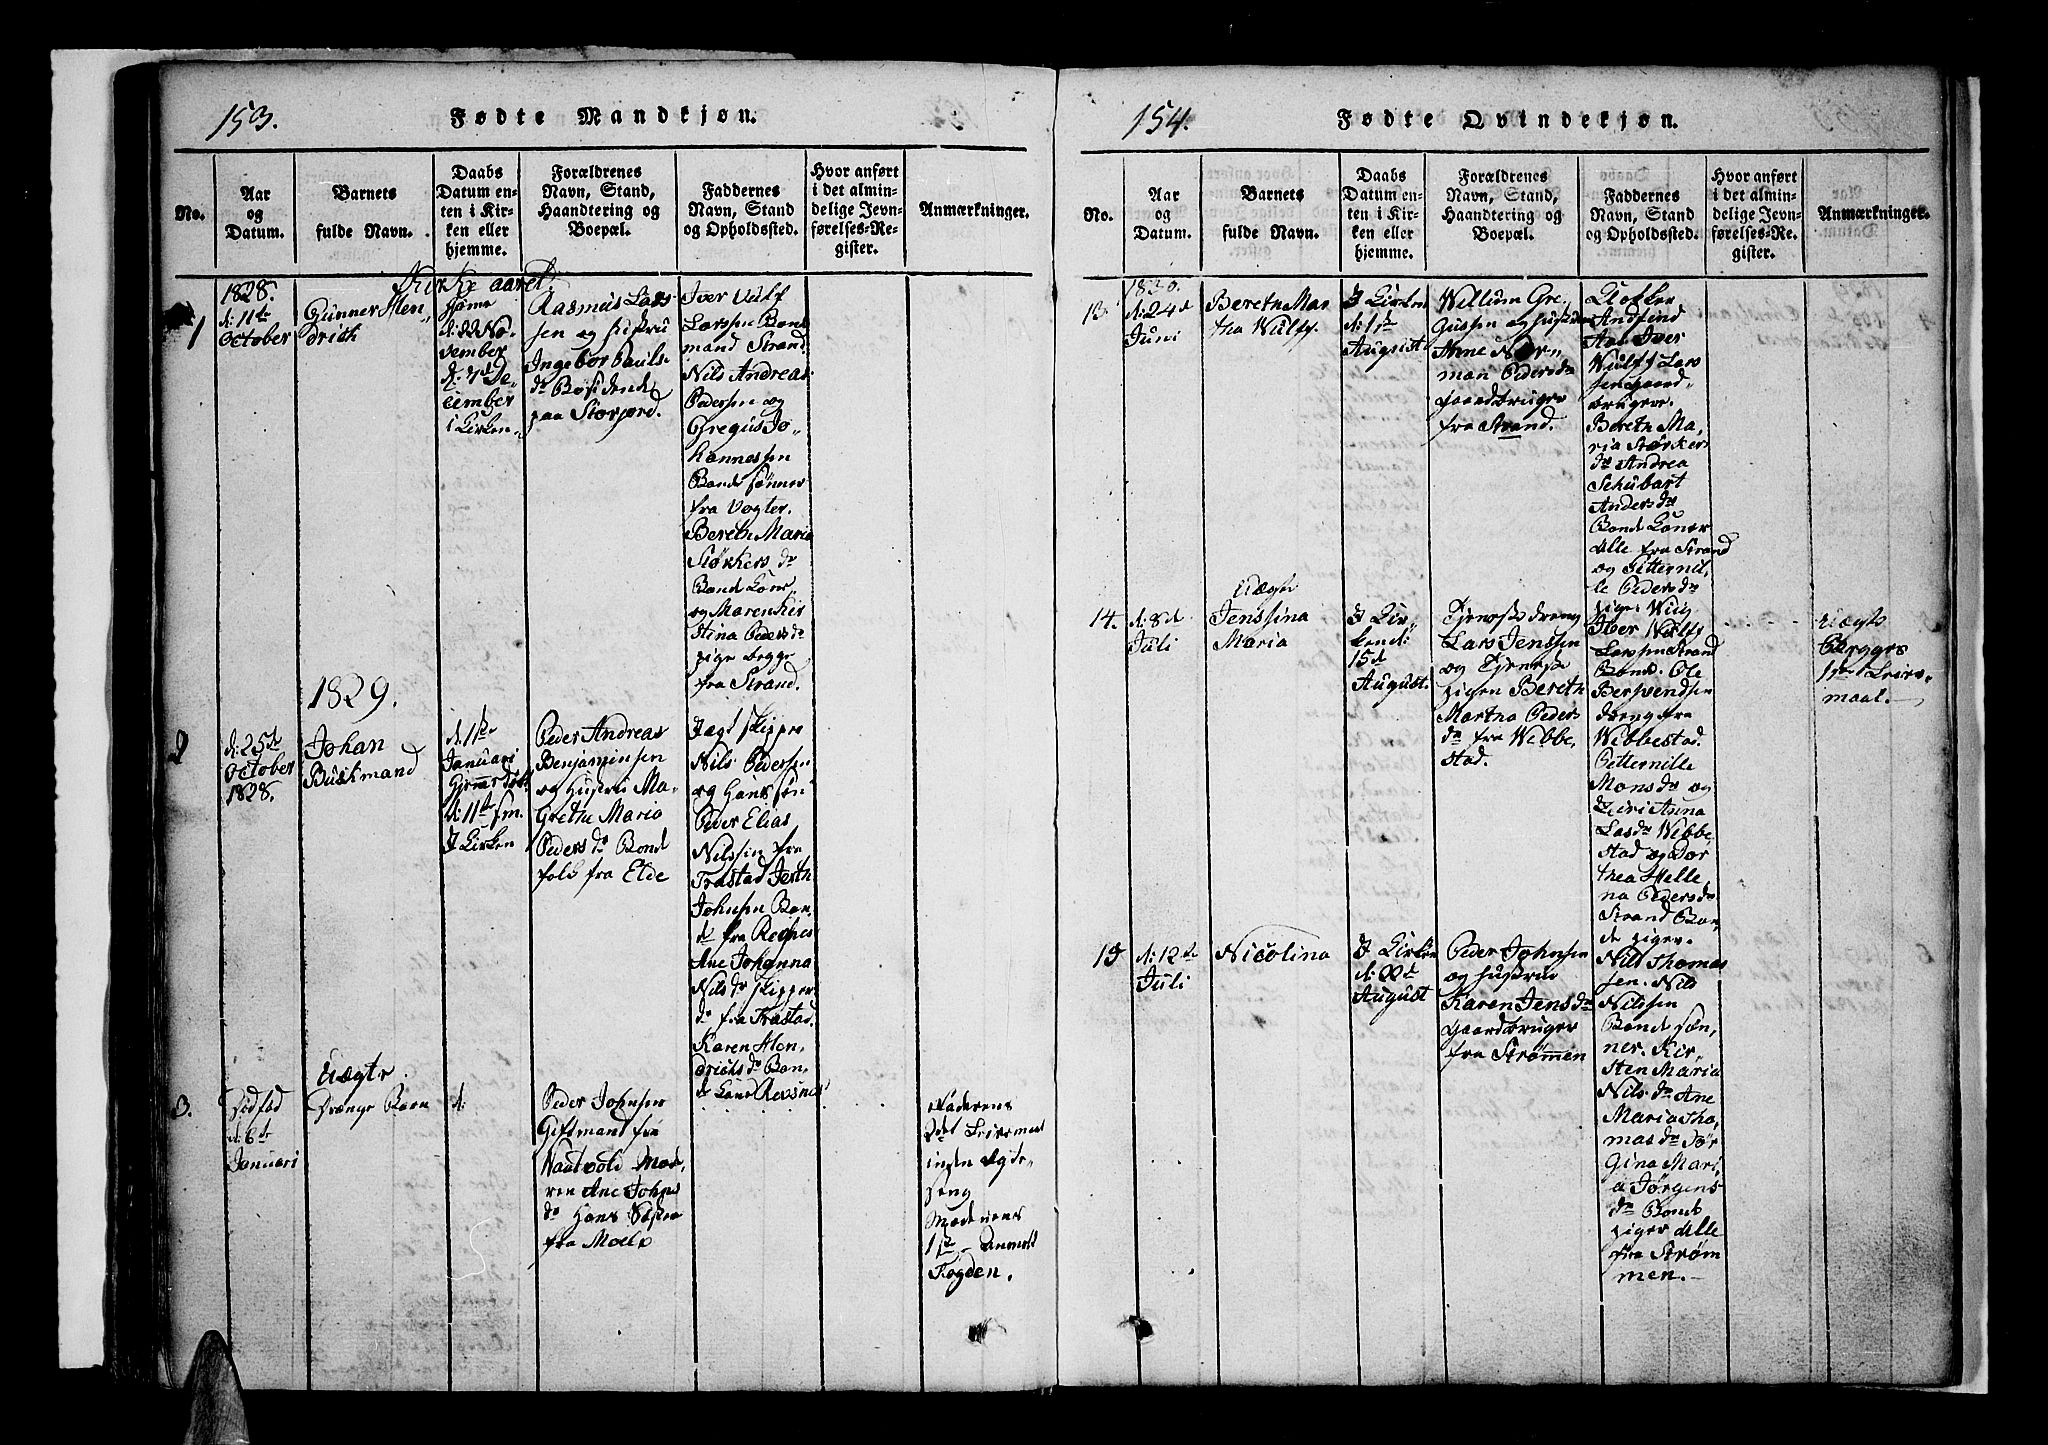 153.
Fødte Mandkjøn.
No.
Aar
og
Datum.
Barnets
fulde Navn.
Daabs
Datum en-
ten i Kir-
ken eller
hjemme.
Forældrenes
Navn, Stand,
Haandtering og
Boepæl.
Faddernes
Navn, Stand
og Opholdssted.
Hvor anført
i det almin-
delige Jevn-
førelses-Re-
gister.
Anmærkninger.
Kirke aaret.
1
1828.
d: 11te
October
Gunner Hen
drich
Hjeme
d: 22 No
vember
d: 7d De
cember
i Kirken
Rasmus Lars
sen og Hustru
Ingebor Pauls
dr
paa Storjord.
Iver Vulf
Larssen Bond
mand Strand.
Nils Andreas
Pedersen og
Gregus Jo
hannessen
Bonde sønner
fra Vogter.
Bereth Maria
Størkers dr
Bonde Kone
og Maren Kir
stina Peders dr
pige begge
fra Strand.
1829.
2
d: 25d
October
1828.
Johan
Buskmand
d: 1te
Januari
Hjemedøbt
d: 11te
I Kirken
Peder Andreas
Benjaminsen
og Hustru Ma
Grethe Maria
Peders dr Bond
folk fra Elde
Jagt skipper
Nils Pedersen
og Hans søn
Peder Elias
Nilssen fra
Trastad
Johnsen Bon
de fra Revsnes
Ane Johanna
Nils dr skipper
fra Trastad.
Karen Hen
drichs dr Bon
de Kone Revsnes
3.
Uægte
Dødfød
d: 6te
Januari
Drænge Barn
d:
Peder Johnsen
Giftmand fra
Mod
ren Ane Johns
dr Hans
fra Moelv
Faderens
2det Leiermaal
ingen
Moderens
1te
Fogden.
154.
Fødte Qvindekjøn.
No.
Aar
og
Datum.
Barnets
fulde Navn.
Daabs
Datum en-
ten i Kir-
ken eller
hjemme.
Forældrenes
Navn, Stand,
Haandtering og
Boepæl.
Faddernes
Navn, Stand
og Opholdssted.
Hvor anført
i det almin-
delige Jevn-
førelses-Re-
gister.
Anmærkninger.
1830.
13
d: 24d
Juni
Bereth Mar
tha Wulff.
I Kirken
d: 1te
August
Willum Gre
Gussen og Hustru
Anne Nor
man Pedersdr
Gaardbruger
fra Strand.
Klokker
Andfind
Aa Iver
Wulff Lars
sen gaard
brugere.
Bereth Ma
ria Størkers
dr Andrea
Schubart
Anders dr
Bonde Koner
alle fra Strand
og Petternil
le Peders dr
pige
14.
d: 8d
Juli
Uægte
Jenssina
Maria
I Kir
ken d:
15d
August.
Tjeneste dreng
Lars Jenssen
og Tjeneste
pigen Bereth
Martha Peders
dr fra Webbe
stad.
Iver Wulff
Larssen Strand
Bonde. Ole
Berjvendsen
dreng fra
Webbestad.
Petternille
Mons dr og
Anna
Lasdr Webbe
stad og Dor
thea Helle
na Peders dr
Strand Bon
de piger.
Uægte
Begges
1te Leier
maal.
15
d: 12te
Juli
Nicolina
I Kirken
d: 22d
August
Peder Johnsen
og Hustrue
Karen Jens dr
Gaardbruger
fra Strømen
Nils Thomas
sen. Nils
Nilssen
Bonde søn
ner. Kir
sten Maria
Nils dr Ane
Maria Tho
mas dr Jør
Gina Mari
a Jørgens
dr Bonde
piger alle
fra Strøm
men.